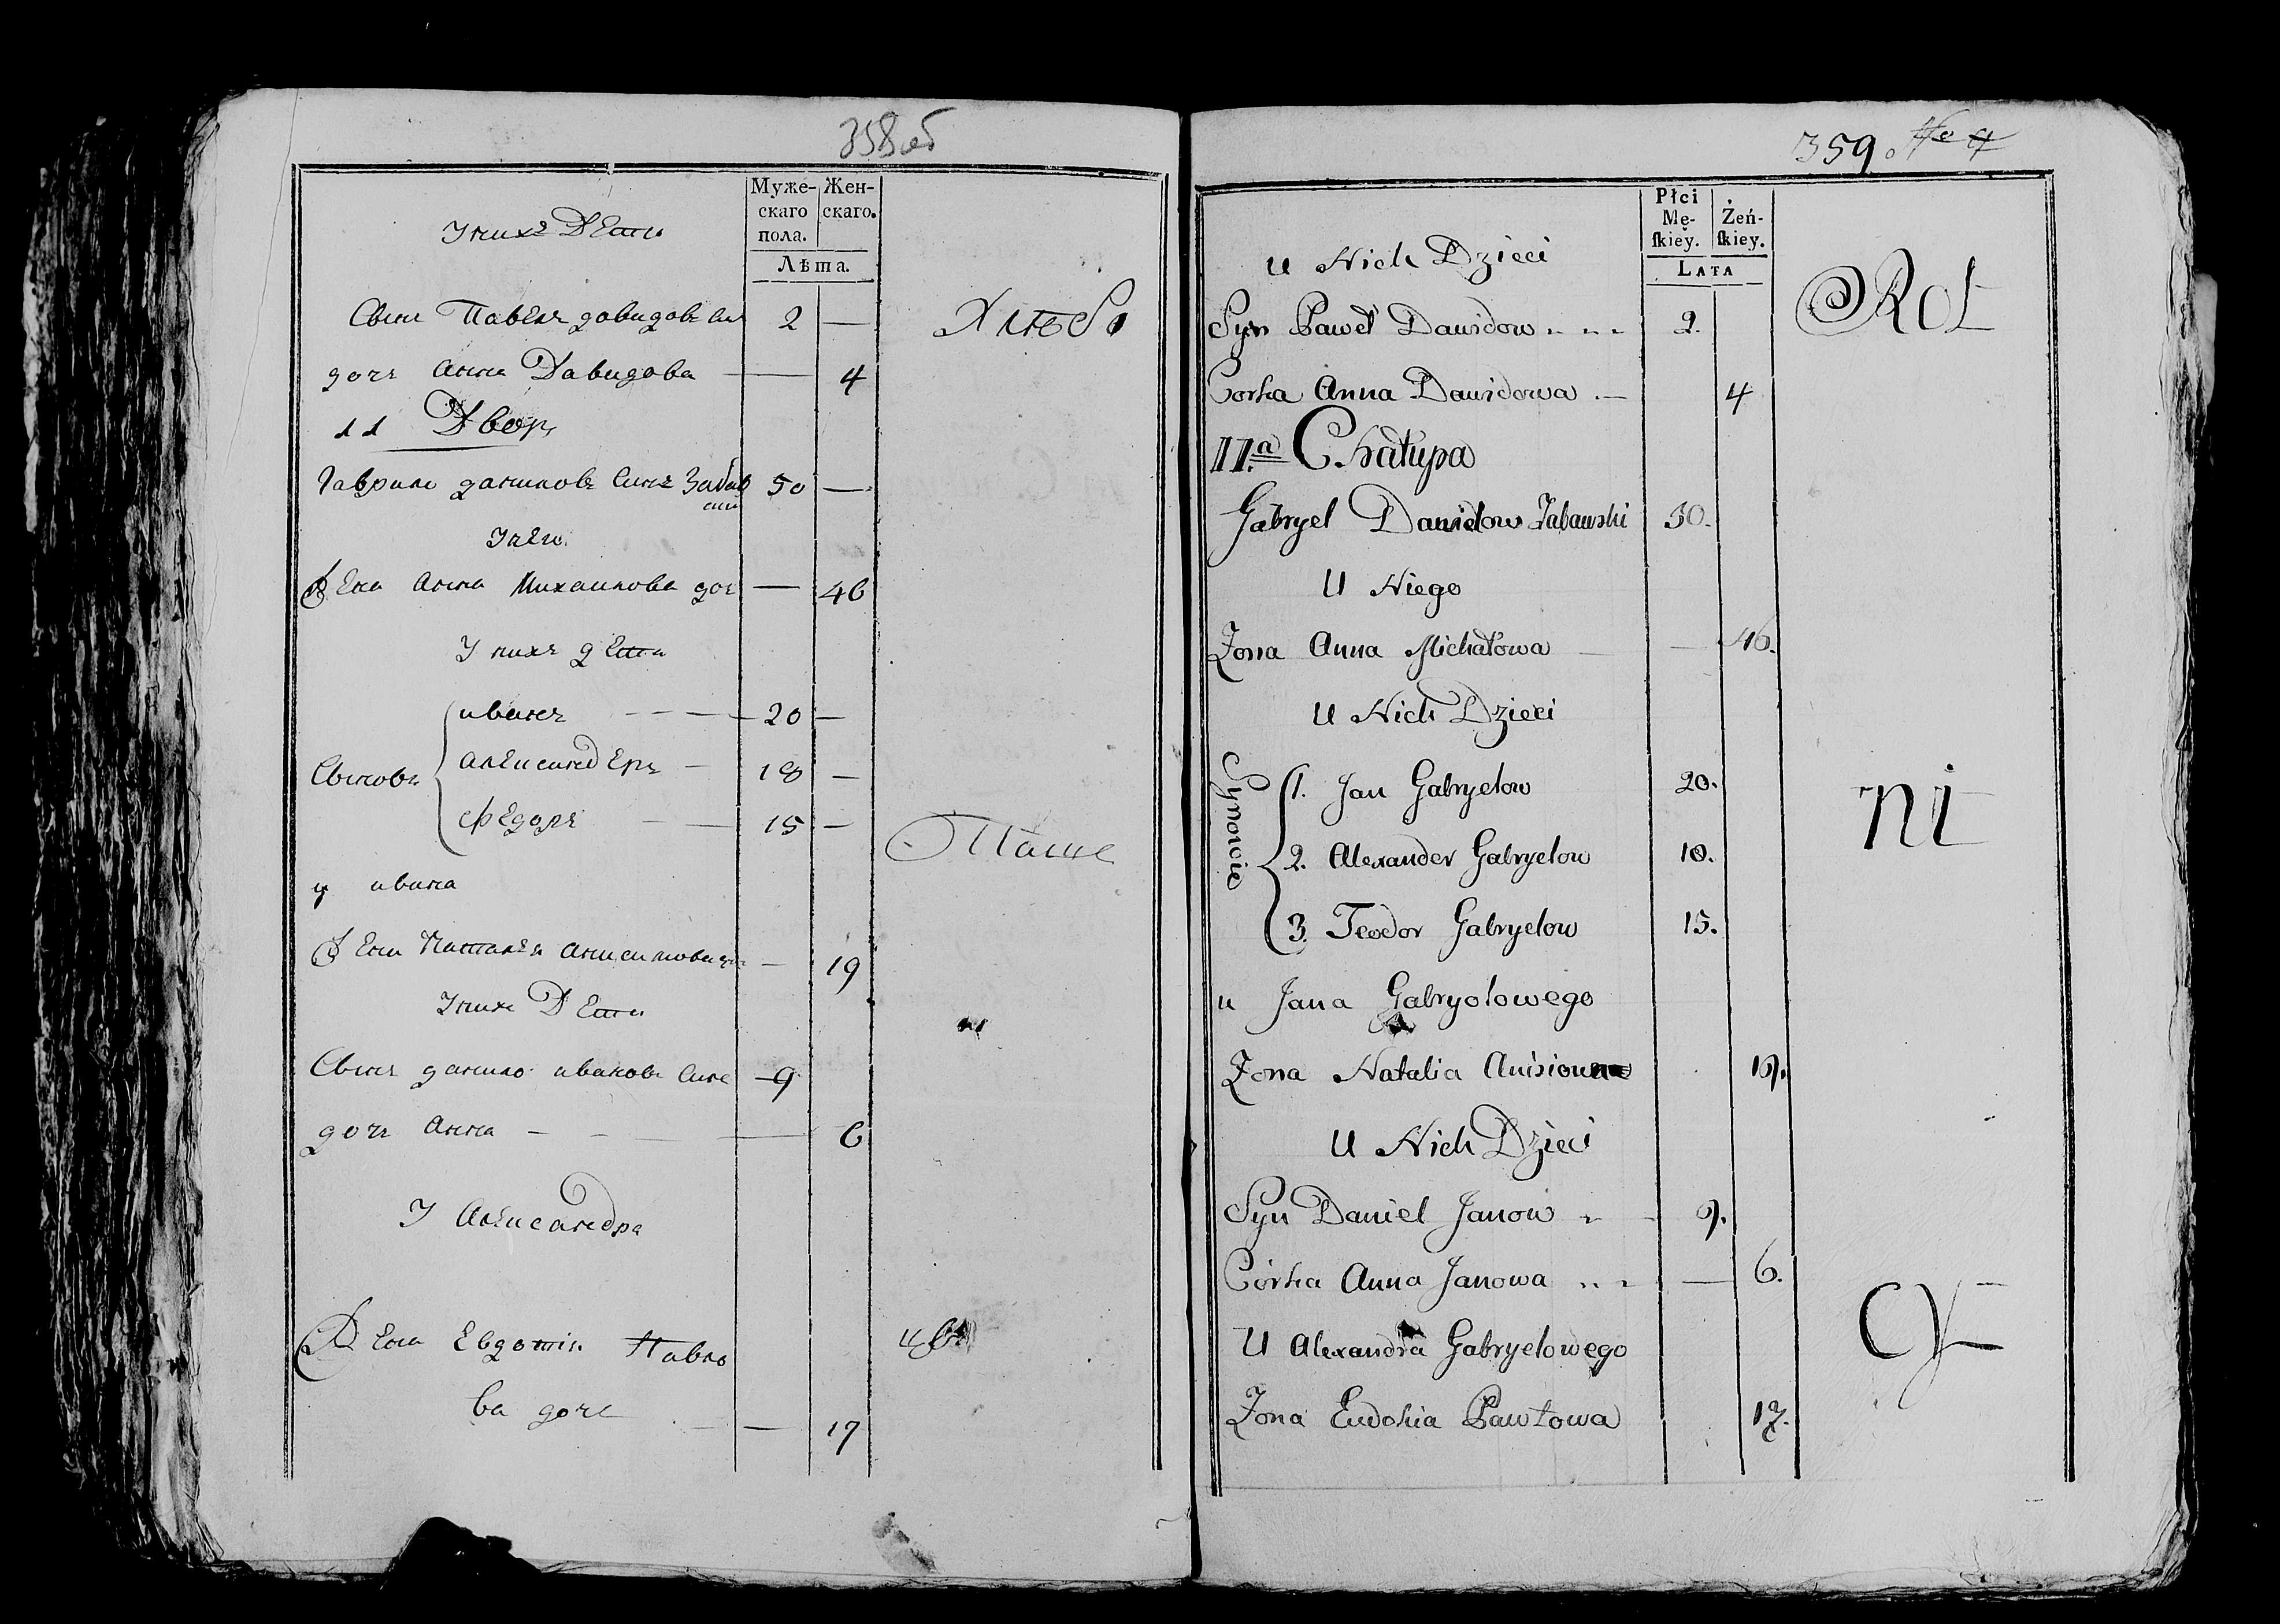 358об
Муже- Жен-
скаго скаго.
пола.
Лѣта.
У нихъ Дети
Сынъ Павелъ довидовъ сы 2 — Хлебо
дочь анна Давидова — 4
11 Дворъ
Гаврило даниловъ сынъ Забав
ски 50 —
У него
Жена анна Михаилова доч — 46
У нихъ дети
Сыновъ
иванъ — 20 —
александеръ — 18 —
федоръ — 15 —
Паше
у ивана
Жена Наталья анисимова — 19
У нихъ Дети
Сынъ данило ивановъ сынъ — 9
дочь анна — 6
У александра
Жена Евдотiя Павло
ва дочь — 17
359.
Płci
Mę- Żeń-
ſkiey. ſkiey.
LATA
U Nich Dzieci
Syn Paweł Dawidow 2. Rol
Corka Anna Dawidowa — 4
11.a Chałupa
Gabryel Danielow Zabawski 50.
U Niego
Zona Anna Michałowa — 46.
U Nich Dzieci
Synowie
1. Jan Gabryelow 20.
ni
2. Alexander Gabryelow 18.
3. Teodor Gabryelow 15.
u Jana Gabryolowego
Zona Natalia 19.
U Nich Dzieci
Syn Daniel Janow 9.
Córka Anna Janowa — 6.
cy
U Alexandra Gabryelowego
Zona Eudokia Pawłowa 17.